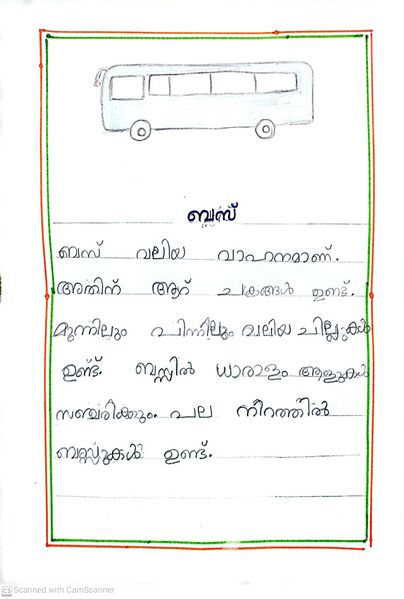 ബസ്
ബസ് വലിയ വാഹനമാണ്.
അതിന് ആറ് ചക്രങ്ങൾ ഉണ്ട്.
മുന്നിലും പിന്നിലും വലിയ ചില്ലുകൾ
ഉണ്ട്. ബസ്സിൽ ധാരാളം ആളുകൾ
സഞ്ചരിക്കും. പല നീറത്തിൽ
ബസ്സുകൾ ഉണ്ട്.
CS Scanned with CamScanner